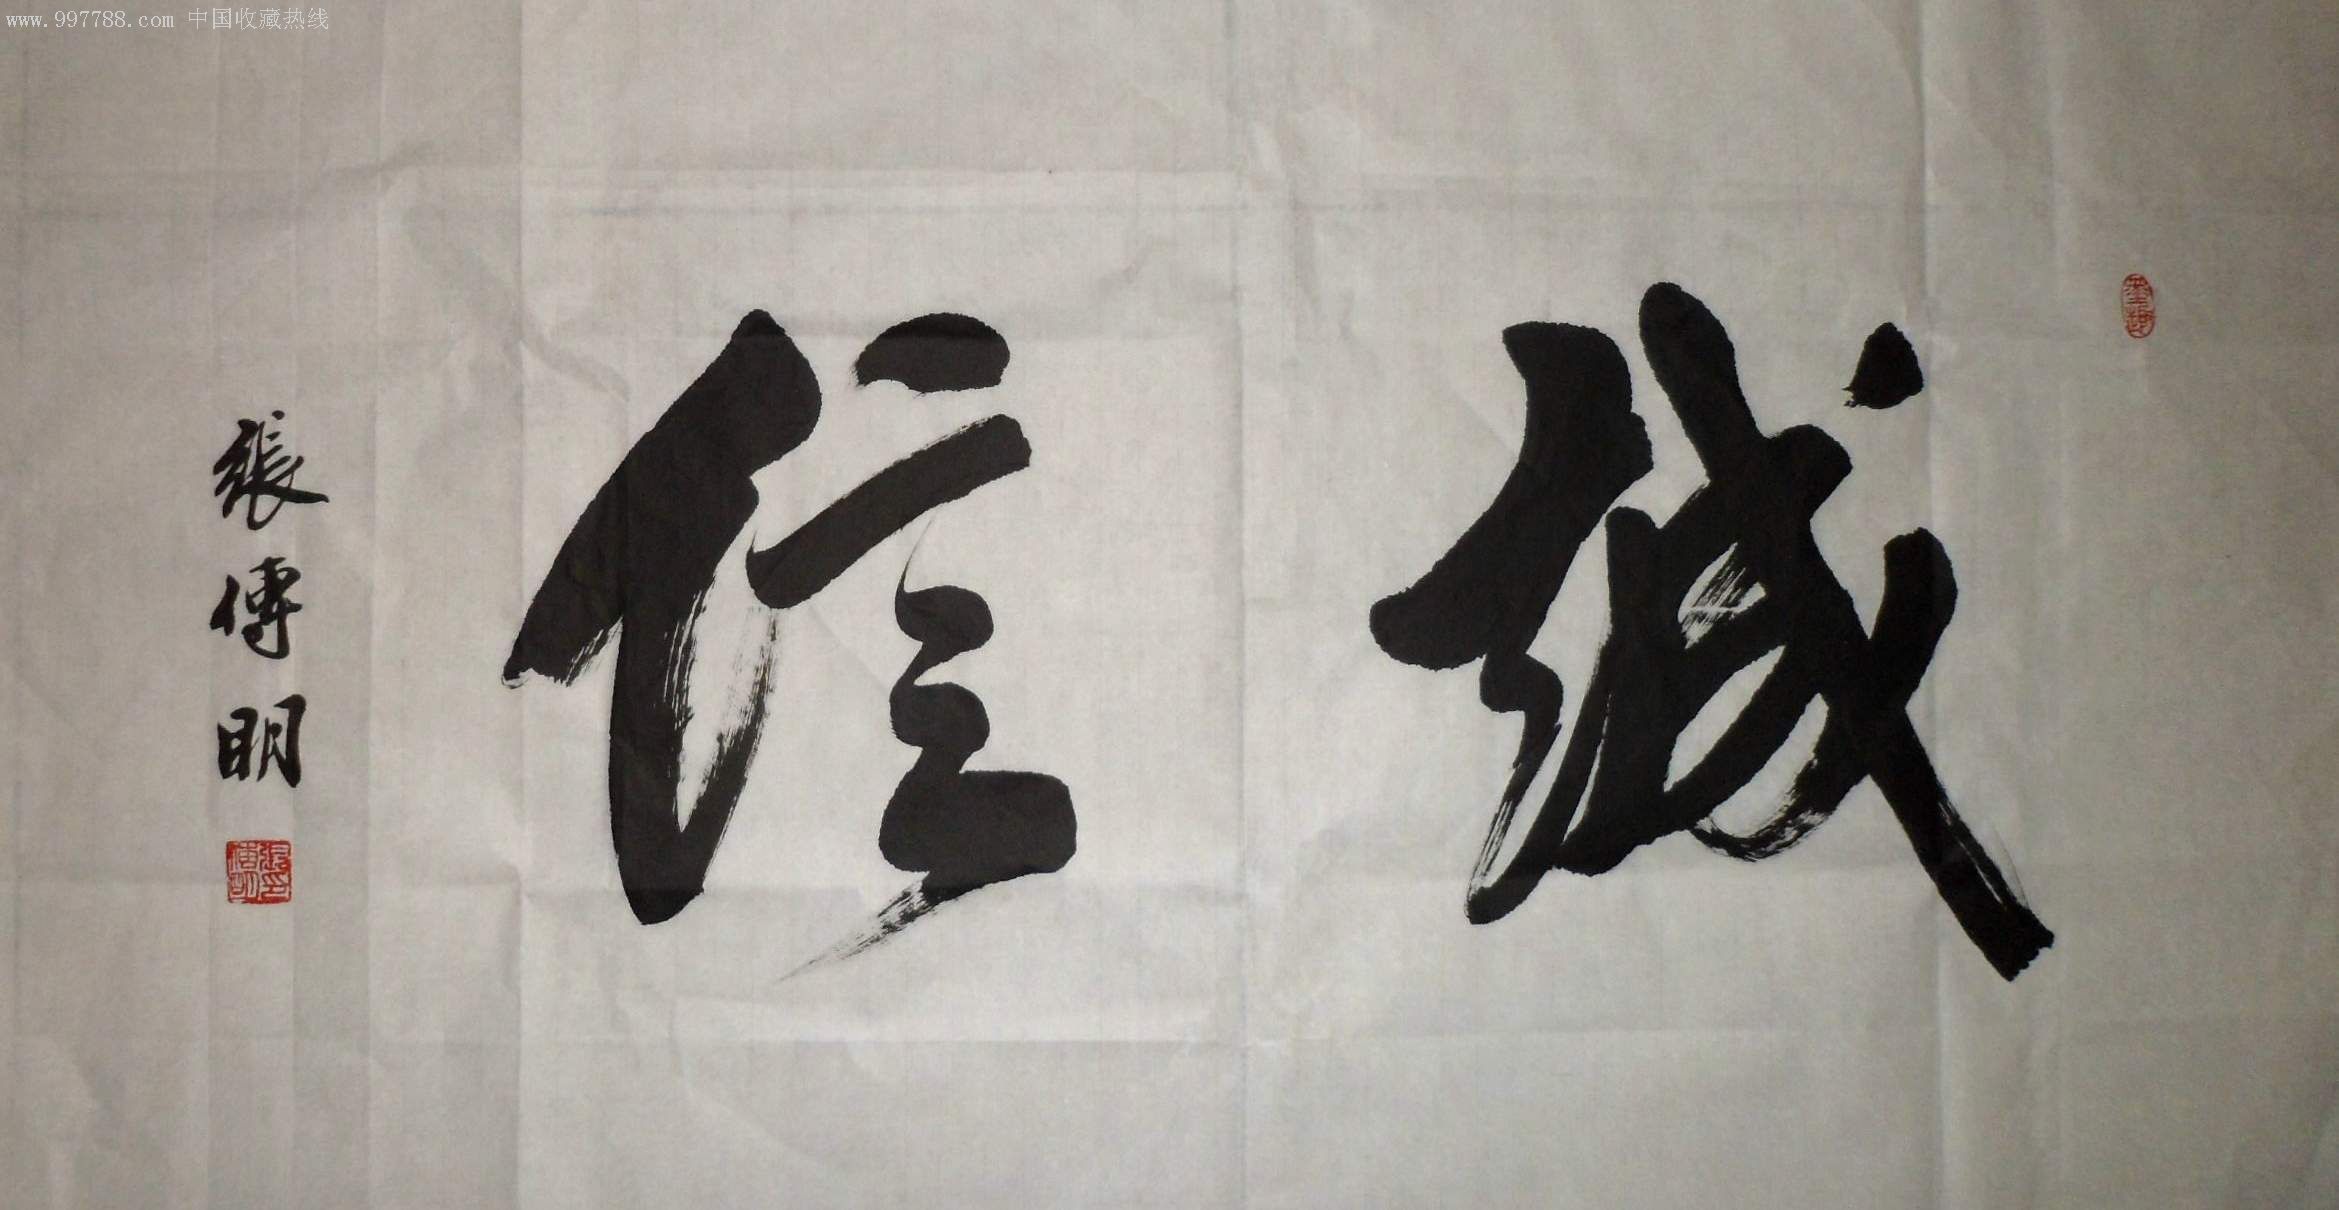 www.997788.com 中国收藏热线
诚信
張傳明